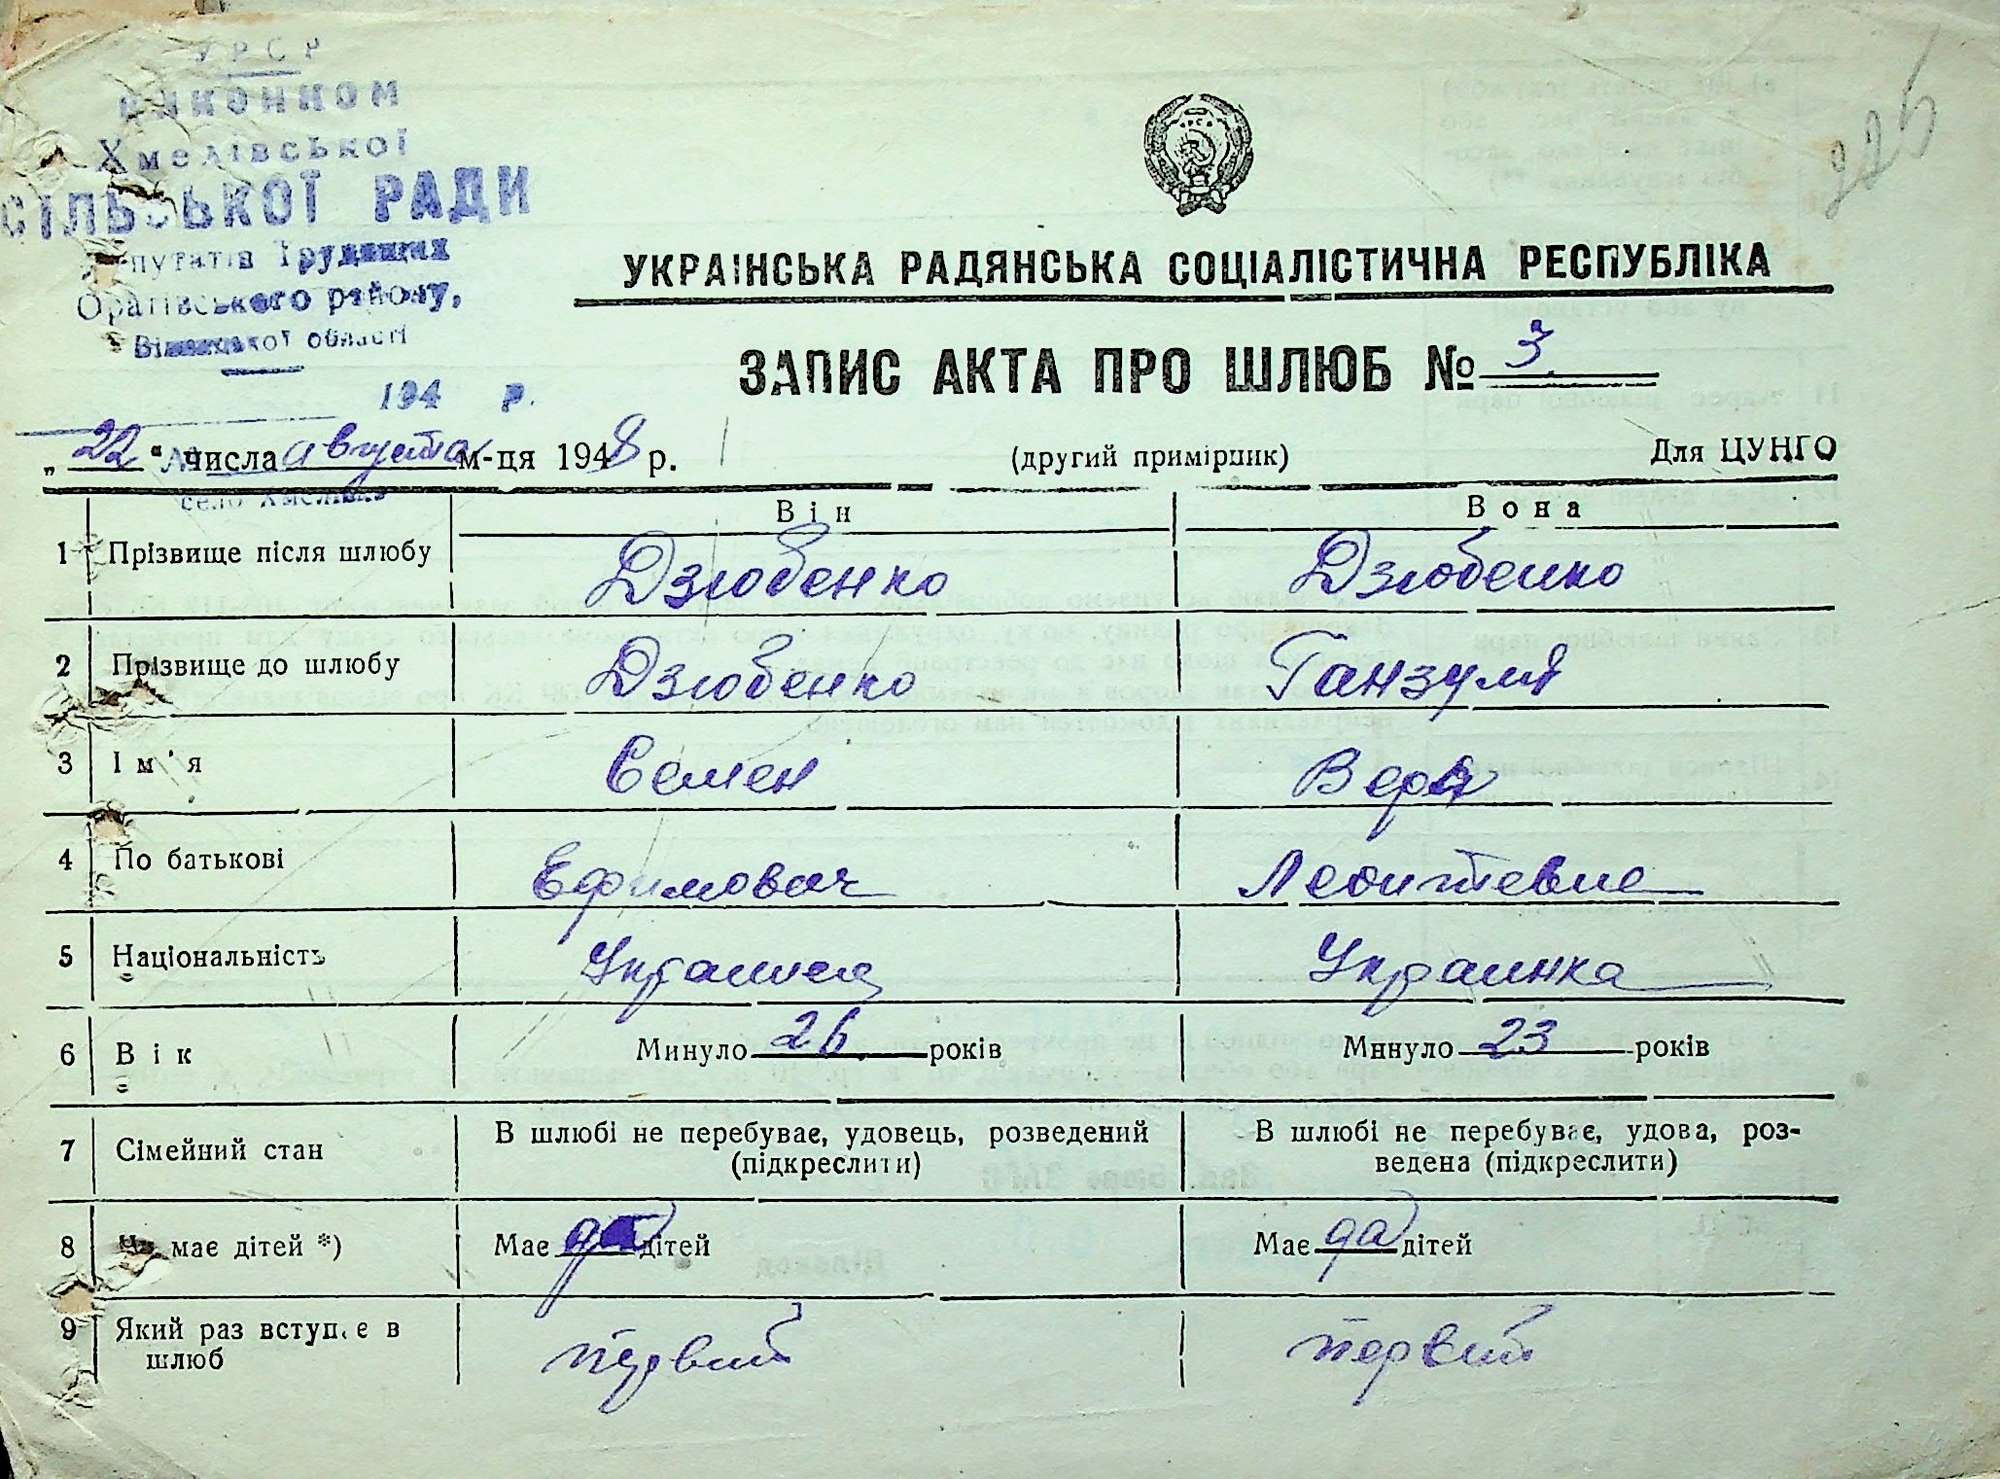 УРСР
виконком
Хмелівської
СІЛЬСЬКОЇ РАДИ
депутатів Трудящих
Оратівського району,
Вінницької області
194 р.
село Хмелівка
225
УКРАЇНСЬКА РАДЯНСЬКА СОЦІАЛІСТИЧНА РЕСПУБЛІКА
ЗАПИС АКТА ПРО ШЛЮБ № 3
„22“ числа августа м-ця 1948 р. (другий примірник) Для ЦУНГО
Він Вона
1 Прізвище після шлюбу Дзюбенко Дзюбенко
2 Прізвище до шлюбу Дзюбенко Ганзуля
3 Ім'я Семен Вера
4 По батькові Ефимович Леонтевне
5 Національність Украинец Украинка
6 Вік Минуло 26 років Минуло 23 років
7 Сімейний стан В шлюбі не перебуває, удовець, розведений В шлюбі не перебуває, удова, роз-
(підкреслити) ведена (підкреслити)
8 Чи має дітей *) Має да дітей Має да дітей
9 Який раз вступає в
шлюб первий первий